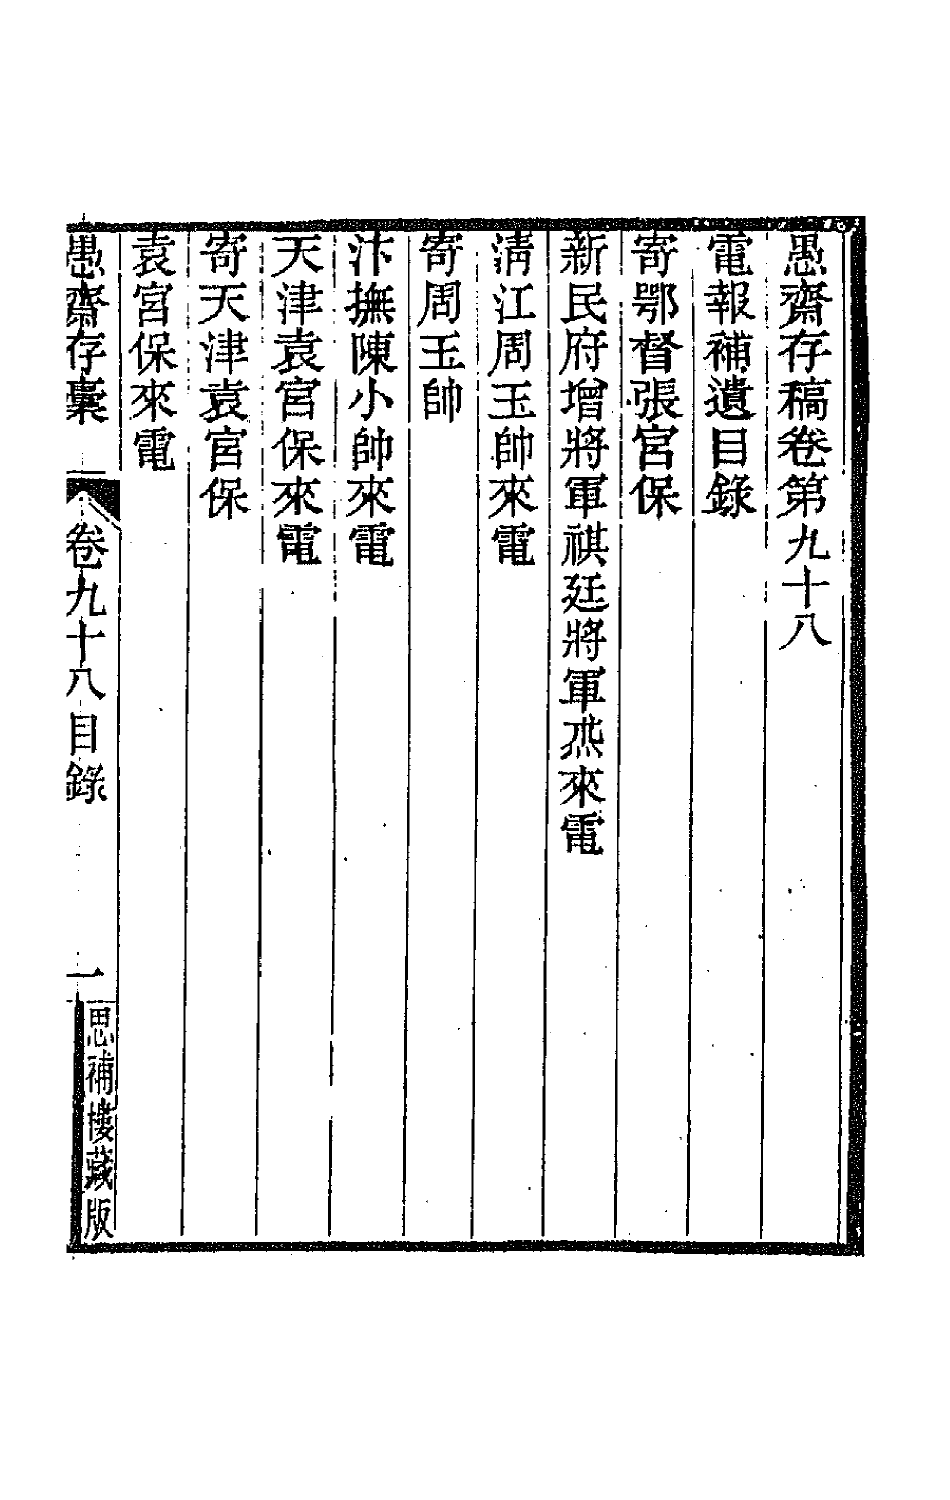 愚齋存稿卷第九十八
電報補遺目錄
寄鄂督張宮保
新民府增將軍祺廷將軍杰來電
淸江周玉帥來電
寄周玉帥
汴撫陳小帥來電
天津袁宮保來電
寄天津袁宮保
袁宮保來電
愚齋存稾
卷九十八目錄
一
思補樓藏版